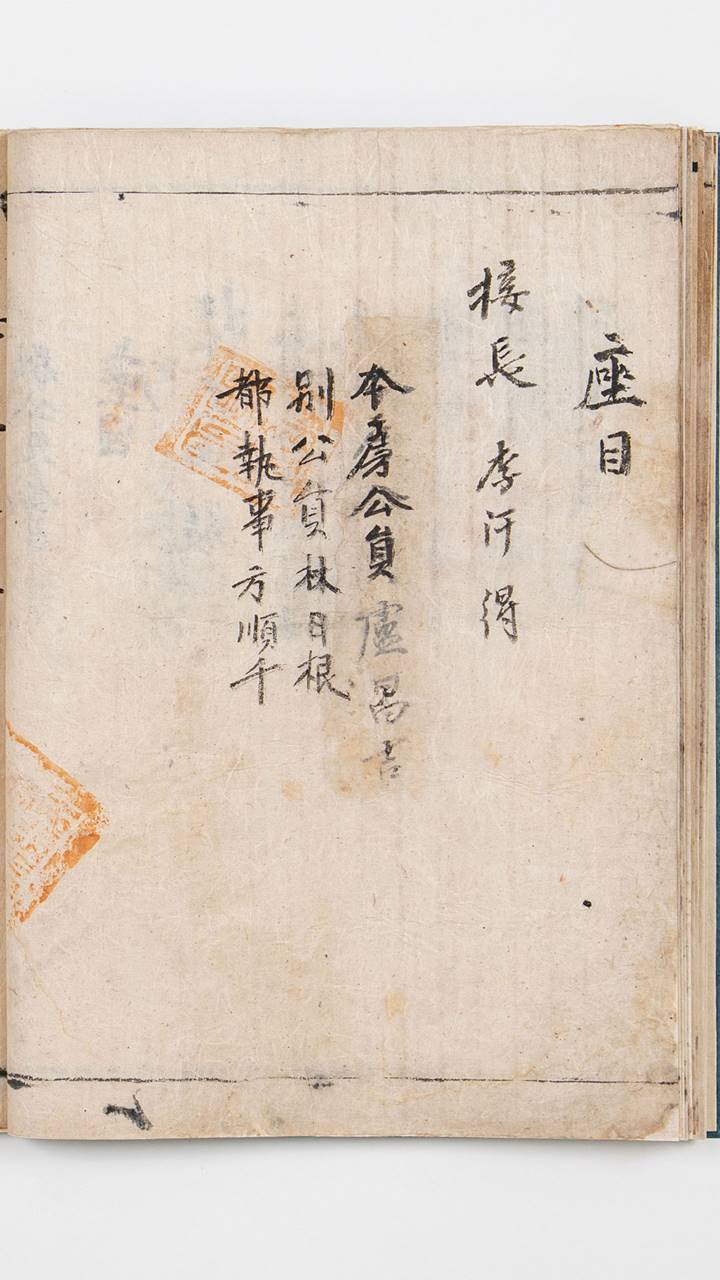 座目
接長 李汗得
本房公員 盧昌吉
別公員 林日根
都執事 方順千